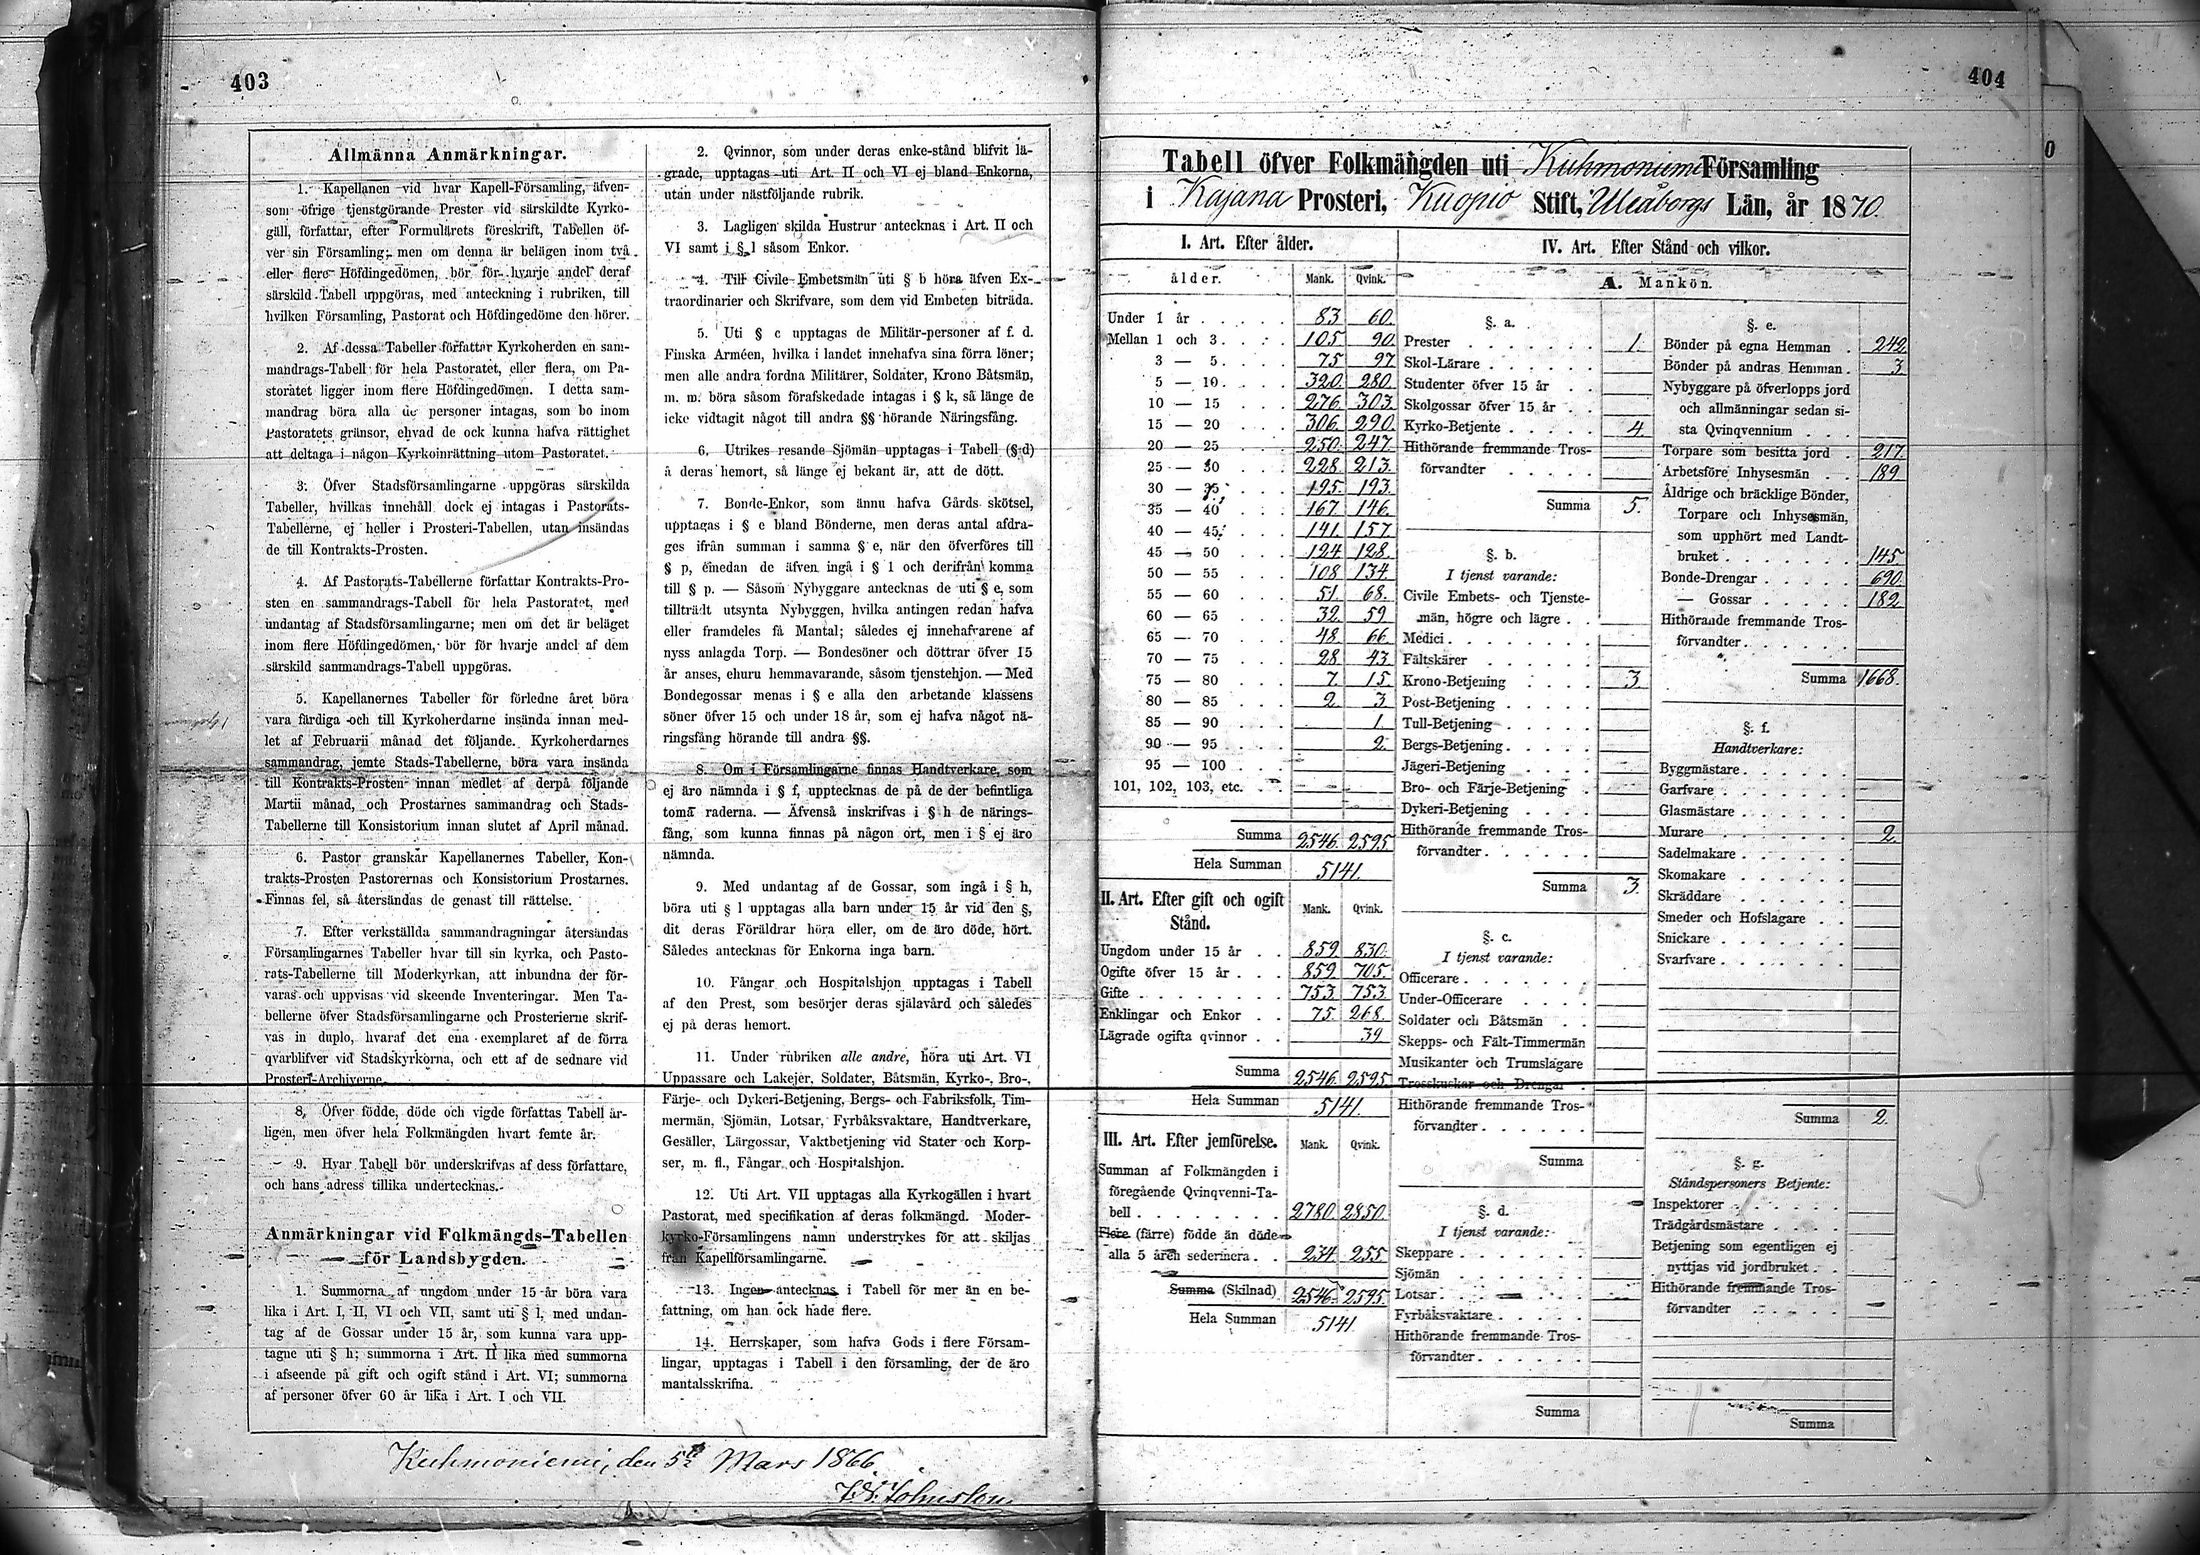 403
Allmänna Anmärkningar.
1. Kapellanen vid hvar Kapell-Församling, äfven-
som öfrige tjenstgörande Prester vid särskildte Kyrko-
gäll, författar, efter Formulärets föreskrift, Tabellen öf-
ver sin Församling; men om denna är belägen inom två
eller flere Höfdingedömen, bör för hvarje andel deraf
särskild Tabell uppgöras, med anteckning i rubriken, till
hvilken Församling, Pastorat och Höfdingedöme den hörer.
2. Af dessa Tabeller författar Kyrkoherden en sam-
mandrags-Tabell för hela Pastoratet, eller flera, om Pa-
storatet ligger inom flere Höfdingedömen. I detta sam-
mandrag böra alla de personer intagas, som bo inom
Pastoratets gränsor, ehvad de ock kunna hafva rättighet
att deltaga i någon Kyrkoinrättning utom Pastoratet.
3. Öfver Stadsförsamlingarne uppgöras särskilda
Tabeller, hvilkas innehåll dock ej intages i Pastorats-
Tabellerne, ej heller i Prosteri-Tabellen, utan insändas
de till Kontrakts-Prosten.
4. Af Pastorats-Tabellerne författar Kontrakts-Pro-
sten en sammandrags-Tabell för hela Pastoratet, med
undantag af Stadsförsamlingarne; men om det är beläget
inom flere Höfdingedömen, bör för hvarje andel af dem
särskild sammandrags-Tabell uppgöras.
5. Kapellanernes Tabeller för förledne året böra
vara färdiga och till Kyrkoherdarne insända innan med-
let af Februarii månad det följande. Kyrkoherdarnes
sammandrag, jemte Stads-Tabellerne, böra vara insända
till Kontrakts-Prosten innan medlet af derpå följande
Martii månad, och Prostarnes sammandrag och Stads-
Tabellerne till Konsistorium innan slutet af April månad.
6. Pastor granskar Kapellanernes Tabeller, Kon-
trakts-Prosten Pastorernas och Konsistorium Prostarnes.
Finnas fel, så återsändas de genast till rättelse.
7. Efter verkställda sammandragningar återsändas
Församlingarnes Tabeller hvar till sin kyrka, och Pasto-
rats-Tabellerne till Moderkyrkan, att inbundna der för-
varas och uppvisas vid skeende Inventeringar. Men Ta-
bellerne öfver Stadsförsamlingarne och Prosterierne skrif-
vas in duplo, hvaraf det ena exemplaret af de förra
qvarblifver vid Stadskyrkorna, och ett af de sednare vid
Prosteri-Archiverne.
8. Öfver födde, döde och vigde författas Tabell år-
ligen, men öfver hela Folkmängden hvart femte år.
9. Hvar Tabell bör underskrifvas af dess författare,
och hans adress tillika undertecknas.
Anmärkningar vid Folkmängds-Tabellen
för Landsbygden.
1. Summorna af ungdom under 15 år böra vara
lika i Art. I, II, VI och VII, samt uti § l, med undan-
tag af de Gossar under 15 år, som kunna vara upp-
tagne uti § h; summorna i Art. II lika med summorna
i afseende på gift och ogift stånd i Art. VI; summorna
af personer öfver 60 år lika i Art. I och VII.
2. Qvinnor, som under deras enke-stånd blifvit lä-
grade, upptagas uti Art. II och VI ej bland Enkorna,
utan under nästföljande rubrik.
3. Lagligen skilda Hustrur antecknas i Art. II och
VI samt i § l såsom Enkor.
4. Till Civile Embetsmän uti § b höra äfven Ex-
traordinarier och Skrifvare, som dem vid Embeten biträda.
5. Uti § c upptagas de Militär-personer af f. d.
Finska Arméen, hvilka i landet innehafva sina förra löner;
men alle andra fordna Militärer, Soldater, Krono Båtsmän,
m. m. böra såsom förafskedade intagas i § k, så länge de
icke vidtagit något till andra §§ hörande Näringsfång.
6. Utrikes resande Sjömän upptagas i Tabell (§ d)
å deras hemort, så länge ej bekant är, att de dött.
7. Bonde-Enkor, som ännu hafva Gårds skötsel,
upptagas i § e bland Bönderne, men deras antal afdra-
ges ifrån summan i samma § e, när den öfverföres till
§ p, emedan de äfven ingå i § l och derifrån komma
till § p. — Såsom Nybyggare antecknas de uti § e, som
tillträdt utsynta Nybyggen, hvilka antingen redan hafva
eller framdeles få Mantal; således ej innehafvarene af
nyss anlagda Torp. — Bondesöner och döttrar öfver 15
år anses, ehuru hemmavarande, såsom tjenstehjon. — Med
Bondegossar menas i § e alla den arbetande klassens
söner öfver 15 och under 18 år, som ej hafva något nä-
ringsfång hörande till andra §§.
8. Om i Församlingarne finnas Handtverkare, som
ej äro nämnda i § f, upptecknas de på de der befintliga
toma raderna. — Äfvenså inskrifvas i § h de närings-
fång, som kunna finnas på någon ort, men i § ej äro
nämnda.
9. Med undantag af de Gossar, som ingå i § h,
böra uti § l upptagas alla barn under 15 år vid den §,
dit deras Föräldrar höra eller, om de äro döde, hört.
Således antecknas för Enkorna inga barn.
10. Fångar och Hospitalshjon upptagas i Tabell
af den Prest, som besörjer deras själavård och således
ej på deras hemort.
11. Under rubriken alle andre, höra uti Art. VI
Uppassare och Lakejer, Soldater, Båtsmän, Kyrko-, Bro-,
Färje- och Dykeri-Betjening, Bergs- och Fabriksfolk, Tim-
mermän, Sjömän, Lotsar, Fyrbåksvaktare, Handtverkare,
Gesäller, Lärgossar, Vaktbetjening vid Stater och Korp-
ser, m. fl., Fångar och Hospitalshjon.
12. Uti Art. VII upptagas alla Kyrkogällen i hvart
Pastorat, med specifikation af deras folkmängd. Moder-
kyrko-Församlingens namn understrykes för att skiljas
från Kapellförsamlingarne.
13. Ingen antecknas i Tabell för mer än en be-
fattning, om han ock hade flere.
14. Herrskaper, som hafva Gods i flere Försam-
lingar, upptagas i Tabell i den församling, der de äro
mantalsskrifna.
Kuhmoniemi, den 5 Mars 1866
404
Tabell öfver Folkmängden uti Kuhmoniemi Församling
i Kajana Prosteri, Kuopio Stift, Uleåborgs Län, år 1870.
I. Art. Efter ålder.
ålder. Mank. Qvink.
Under 1 år 83 60.
Mellan 1 och 3. 105 90.
3 — 5. 75 97
5 — 10. 320. 280.
10 — 15 276. 303.
15 — 20 306. 290.
20 — 25 250. 247.
25 — 30 228. 213.
30 — 35 195. 193.
35 — 40 167. 146.
40 — 45 141. 157.
45 — 50 124. 128.
50 — 55 108 134.
55 — 60 51. 68.
60 — 65 32. 59
65 — 70 48 66.
70 — 75 28 43.
75 — 80 7. 15.
80 — 85 2 3
85 — 90 1.
90 — 95 2.
95 — 100
101, 102, 103, etc.
Summa 2546. 2595
Hela Summan 5141.
II. Art. Efter gift och ogift
Stånd. Mank. Qvink.
Ungdom under 15 år 859. 830.
Ogifte öfver 15 år 859. 705.
Gifte 753. 753
Enklingar och Enkor 75. 268.
Lägrade ogifta qvinnor 39
Summa 2546. 2595.
Hela Summan 5141.
III. Art. Efter jemförelse. Mank. Qvink.
Summan af Folkmängden i
föregående Qvinqvenni-Ta-
bell 2780. 2850.
Flere (färre) födde än döde
alla 5 åren sedermera 234 255
Summa (Skilnad) 2546. 2595.
Hela Summan 5141
IV. Art. Efter Stånd och vilkor.
A. Mankön.
§. a.
Prester 1.
Skol-Lärare
Studenter öfver 15 år
Skolgossar öfver 15 år
Kyrko-Betjente 4.
Hithörande fremmande Tros-
förvandter
Summa 5.
§. b.
I tjenst varande:
Civile Embets- och Tjenste-
män, högre och lägre
Medici
Fältskärer
Krono-Betjening 3.
Post-Betjening
Tull-Betjening
Bergs-Betjening
Jägeri-Betjening
Bro- och Färje-Betjening
Dykeri-Betjening
Hithörande fremmande Tros-
förvandter
Summa 3.
§. c.
I tjenst varande:
Officerare
Under-Officerare
Soldater och Båtsmän
Skepps- och Fält-Timmermän
Musikanter och Trumslagare
Trosskuskar och Drengar
Hithörande fremmande Tros-
förvandter
Summa
§. d.
I tjenst varande:
Skeppare
Sjömän
Lotsar
Fyrbåksvaktare
Hithörande fremmande Tros-
förvandter
Summa
§. e.
Bönder på egna Hemman 242.
Bönder på andras Hemman 3
Nybyggare på öfverlopps jord
och allmänningar sedan si-
sta Qvinqvennium
Torpare som besitta jord 217.
Arbetsföre Inhysesmän 189
Åldrige och bräcklige Bönder,
Torpare och Inhysesmän,
som upphört med Landt-
bruket 145.
Bonde-Drengar 690.
— Gossar 182
Hithörande fremmande Tros-
förvandter
Summa 1668.
§. f.
Handtverkare:
Byggmästare
Garfvare
Glasmästare
Murare 2.
Sadelmakare
Skomakare
Skräddare
Smeder och Hofslagare
Snickare
Svarfvare
Summa 2.
§. g.
Ståndspersoners Betjente:
Inspektorer
Trädgårdsmästare
Betjening som egentligen ej
nyttjas vid jordbruket
Hithörande fremmande Tros-
förvandter
Summa